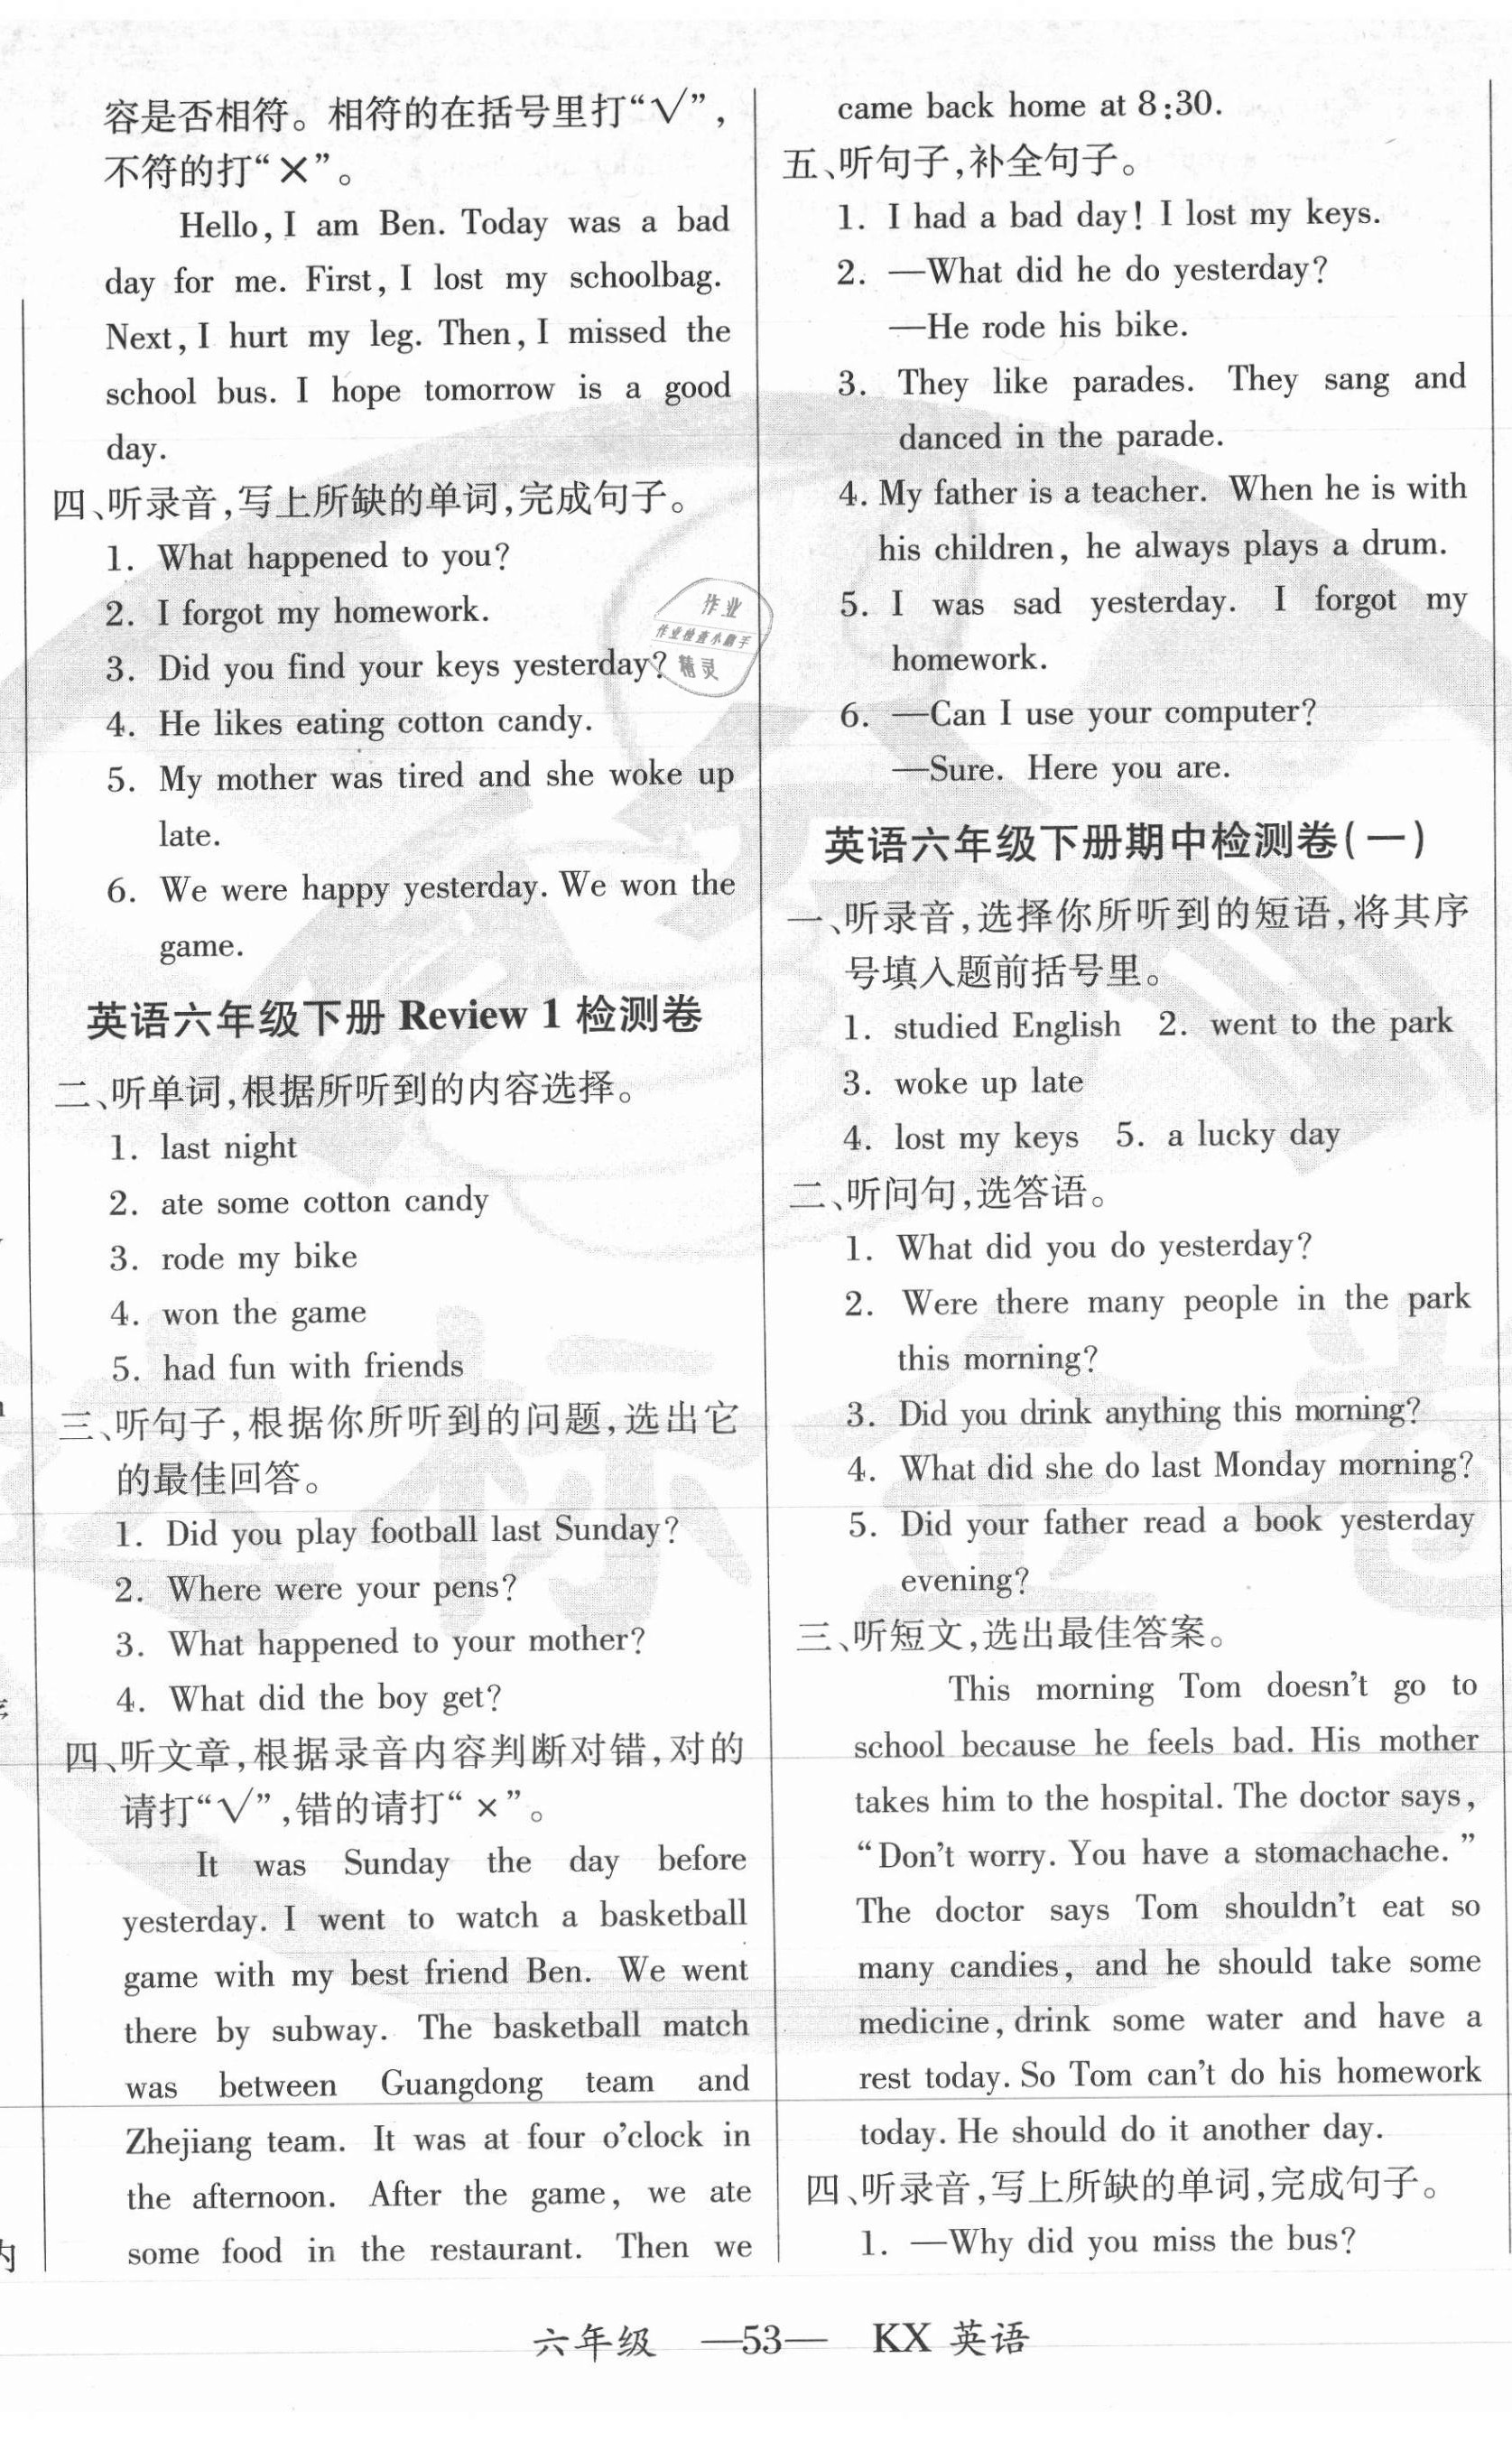 容是否相符。相符的在括号里打“√”，
不符的打“×”。
Hello, I am Ben. Today was a bad
day for me. First, I lost my schoolbag.
Next, I hurt my leg. Then, I missed the
school bus. I hope tomorrow is a good
day.
四、听录音，写上所缺的单词，完成句子。
1. What happened to you?
2. I forgot my homework.
3. Did you find your keys yesterday?
4. He likes eating cotton candy.
5. My mother was tired and she woke up
late.
6. We were happy yesterday. We won the
game.
英语六年级下册 Review 1 检测卷
二、听单词，根据所听到的内容选择。
1. last night
2. ate some cotton candy
3. rode my bike
4. won the game
5. had fun with friends
三、听句子，根据你所听到的问题，选出它
的最佳回答。
1. Did you play football last Sunday?
2. Where were your pens?
3. What happened to your mother?
4. What did the boy get?
四、听文章，根据录音内容判断对错，对的
请打“√”，错的请打“×”。
It was Sunday the day before
yesterday. I went to watch a basketball
game with my best friend Ben. We went
there by subway. The basketball match
was between Guangdong team and
Zhejiang team. It was at four o’clock in
the afternoon. After the game, we ate
some food in the restaurant. Then we
came back home at 8:30.
五、听句子，补全句子。
1. I had a bad day! I lost my keys.
2. —What did he do yesterday?
—He rode his bike.
3. They like parades. They sang and
danced in the parade.
4. My father is a teacher. When he is with
his children, he always plays a drum.
5. I was sad yesterday. I forgot my
homework.
6. —Can I use your computer?
—Sure. Here you are.
英语六年级下册期中检测卷（一）
一、听录音，选择你所听到的短语，将其序
号填入题前括号里。
1. studied English 2. went to the park
3. woke up late
4. lost my keys 5. a lucky day
二、听问句，选答语。
1. What did you do yesterday?
2. Were there many people in the park
this morning?
3. Did you drink anything this morning?
4. What did she do last Monday morning?
5. Did your father read a book yesterday
evening?
三、听短文，选出最佳答案。
This morning Tom doesn’t go to
school because he feels bad. His mother
takes him to the hospital. The doctor says,
“Don’t worry. You have a stomachache.”
The doctor says Tom shouldn’t eat so
many candies, and he should take some
medicine, drink some water and have a
rest today. So Tom can’t do his homework
today. He should do it another day.
四、听录音，写上所缺的单词，完成句子。
1. —Why did you miss the bus?
作业
作业检查小助手
精灵
标 金卷
内
六年级 —53— KX 英语